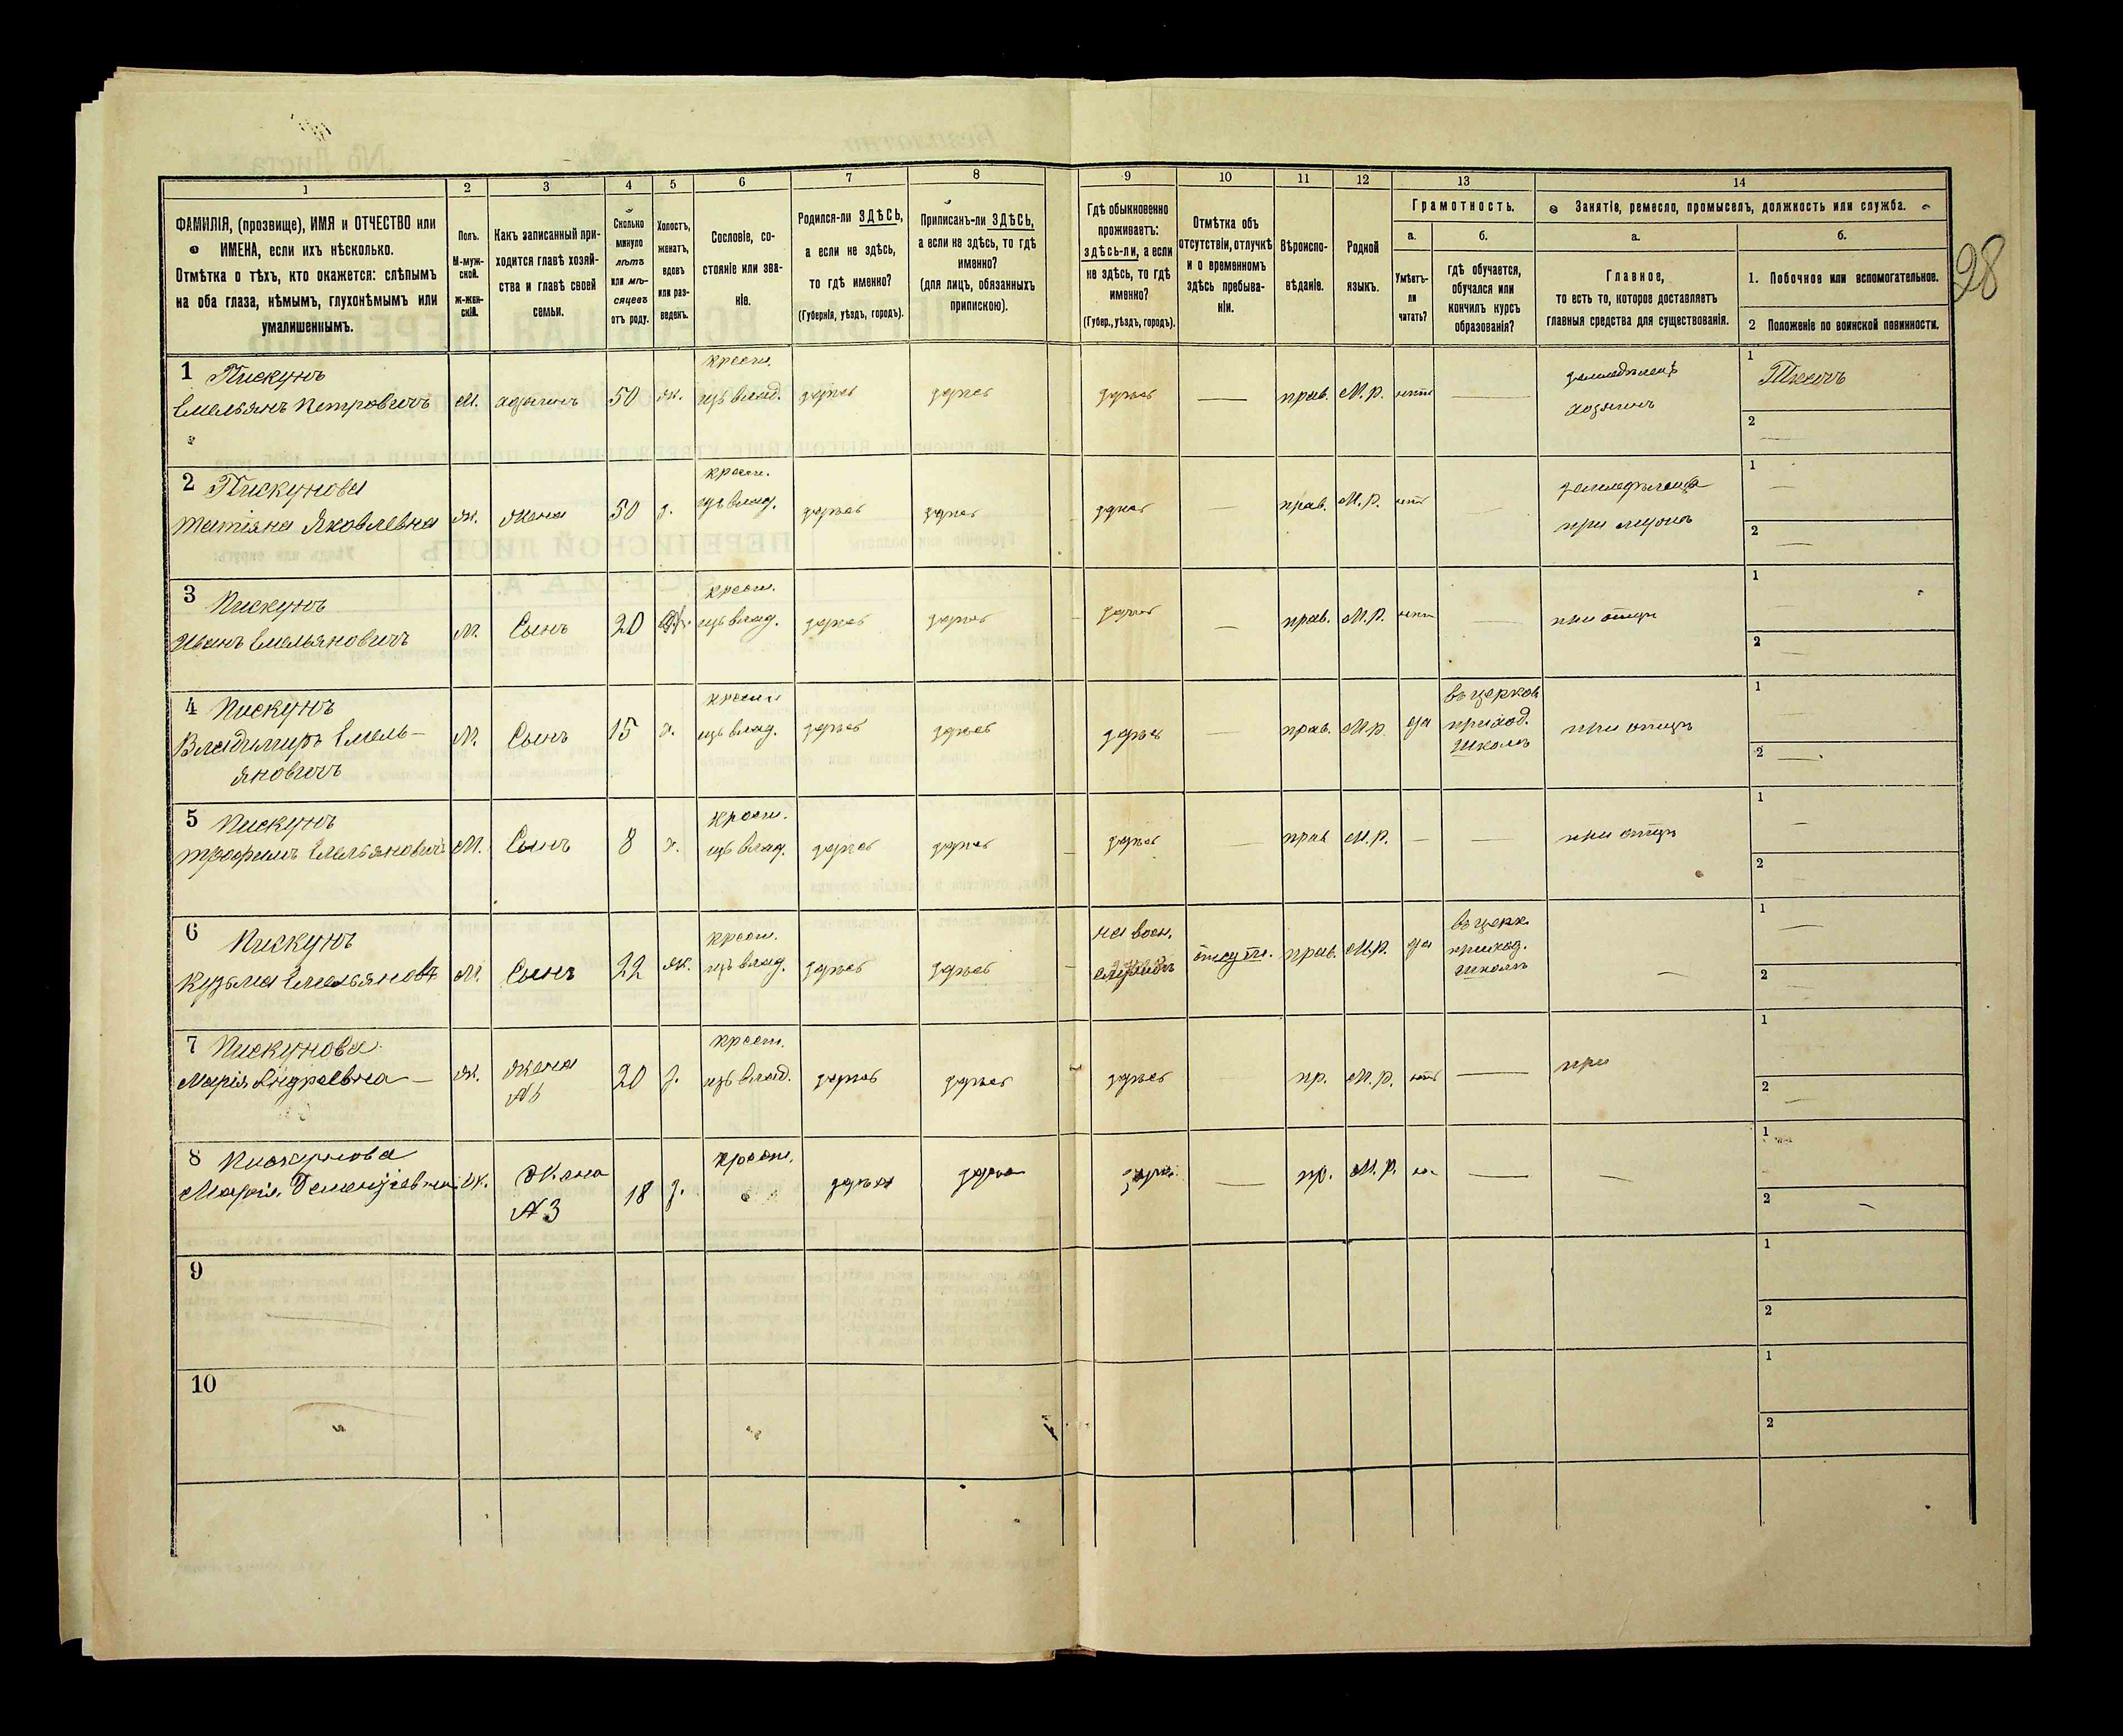 28
1
2
3
4
5
6
7
8
9
10
11
12
13
14
ФАМИЛІЯ, (прозвище), ИМЯ и ОТЧЕСТВО или
ИМЕНА, если ихъ нѣсколько.
Отмѣтка о тѣхъ, кто окажется: слѣпымъ
на оба глаза, нѣмымъ, глухонѣмымъ или
умалишеннымъ.
Полъ.
М-муж-
ской.
Ж-жен-
скій.
Какъ записанный при-
ходится главѣ хозяй-
ства и главѣ своей
семьи.
Сколько
минуло
лѣтъ
или мѣ-
сяцевъ
отъ роду.
Холостъ,
женатъ,
вдовъ
или раз-
веденъ.
Сословіе, со-
стояніе или зва-
ніе.
Родился-ли ЗДѢСЬ,
а если не здѣсь,
то гдѣ именно?
(Губернія, уѣздъ, городъ).
Приписанъ-ли ЗДѢСЬ,
а если не здѣсь, то гдѣ
именно?
(для лицъ, обязанныхъ
припискою).
Гдѣ обыкновенно
проживаетъ:
здѣсь-ли, а если
не здѣсь, то гдѣ
именно?
(Губер., уѣздъ, городъ).
Отмѣтка объ
отсутствіи, отлучкѣ
и о временномъ
здѣсь пребыва-
ніи.
Вѣроиспо-
вѣданіе.
Родной
языкъ.
Грамотность.
а.
Умѣетъ-
ли
читать?
б.
гдѣ обучается,
обучался или
кончилъ курсъ
образованія?
Занятіе, ремесло, промыселъ, должность или служба.
а.
Главное,
то есть то, которое доставляетъ
главныя средства для существованія.
б.
1. Побочное или вспомогательное.
2 Положеніе по воинской повинности.
1 Пискунъ
Емельянъ Петровичъ М. хозяинъ 50 ж. крест. изъ влад. здѣсь здѣсь здѣсь — прав. М.р. нѣтъ — земледѣлецъ хозяинъ 1 Ткачъ 2 —
2 Пискунова
Татіяна Яковлевна ж. жена 50 з. крест. изъ влад. здѣсь здѣсь здѣсь — прав. М.р. нѣтъ — при мужѣ 1 — 2 —
3 Пискунъ
Иванъ Емельяновичъ М. Сынъ 20 крест. изъ влад. здѣсь здѣсь здѣсь — прав. М.р. нѣтъ — при отцѣ 1 — 2 —
4 Пискунъ
Владимиръ Емель-
яновичъ М. Сынъ 15 х. крест. изъ влад. здѣсь здѣсь здѣсь — прав. М.р. да въ церков. приход. школѣ при отцѣ 1 — 2 —
5 Пискунъ
Трофимъ Емельяновичъ М. Сынъ 8 х. крест. изъ влад. здѣсь здѣсь здѣсь — прав. М.р. — — при отцѣ 1 — 2
6 Пискунъ
Кузьма Емельяновъ М. Сынъ 22 ж. крест. изъ влад. здѣсь здѣсь на воен. службѣ отсутс. прав. М.р. да въ церк. приход. школѣ — 1 — 2 —
7 Пискунова
Марія Андреевна — ж. жена 20 з. крест. изъ влад. здѣсь здѣсь здѣсь пр. М.р. нѣтъ — при 1 2 —
8 Пискунова
Марія Дементіевна ж. Жена №3 18 з. крест. здѣсь здѣсь здѣсь — пр. М.р. — — 1 2 —
9
1
2
10
1
2